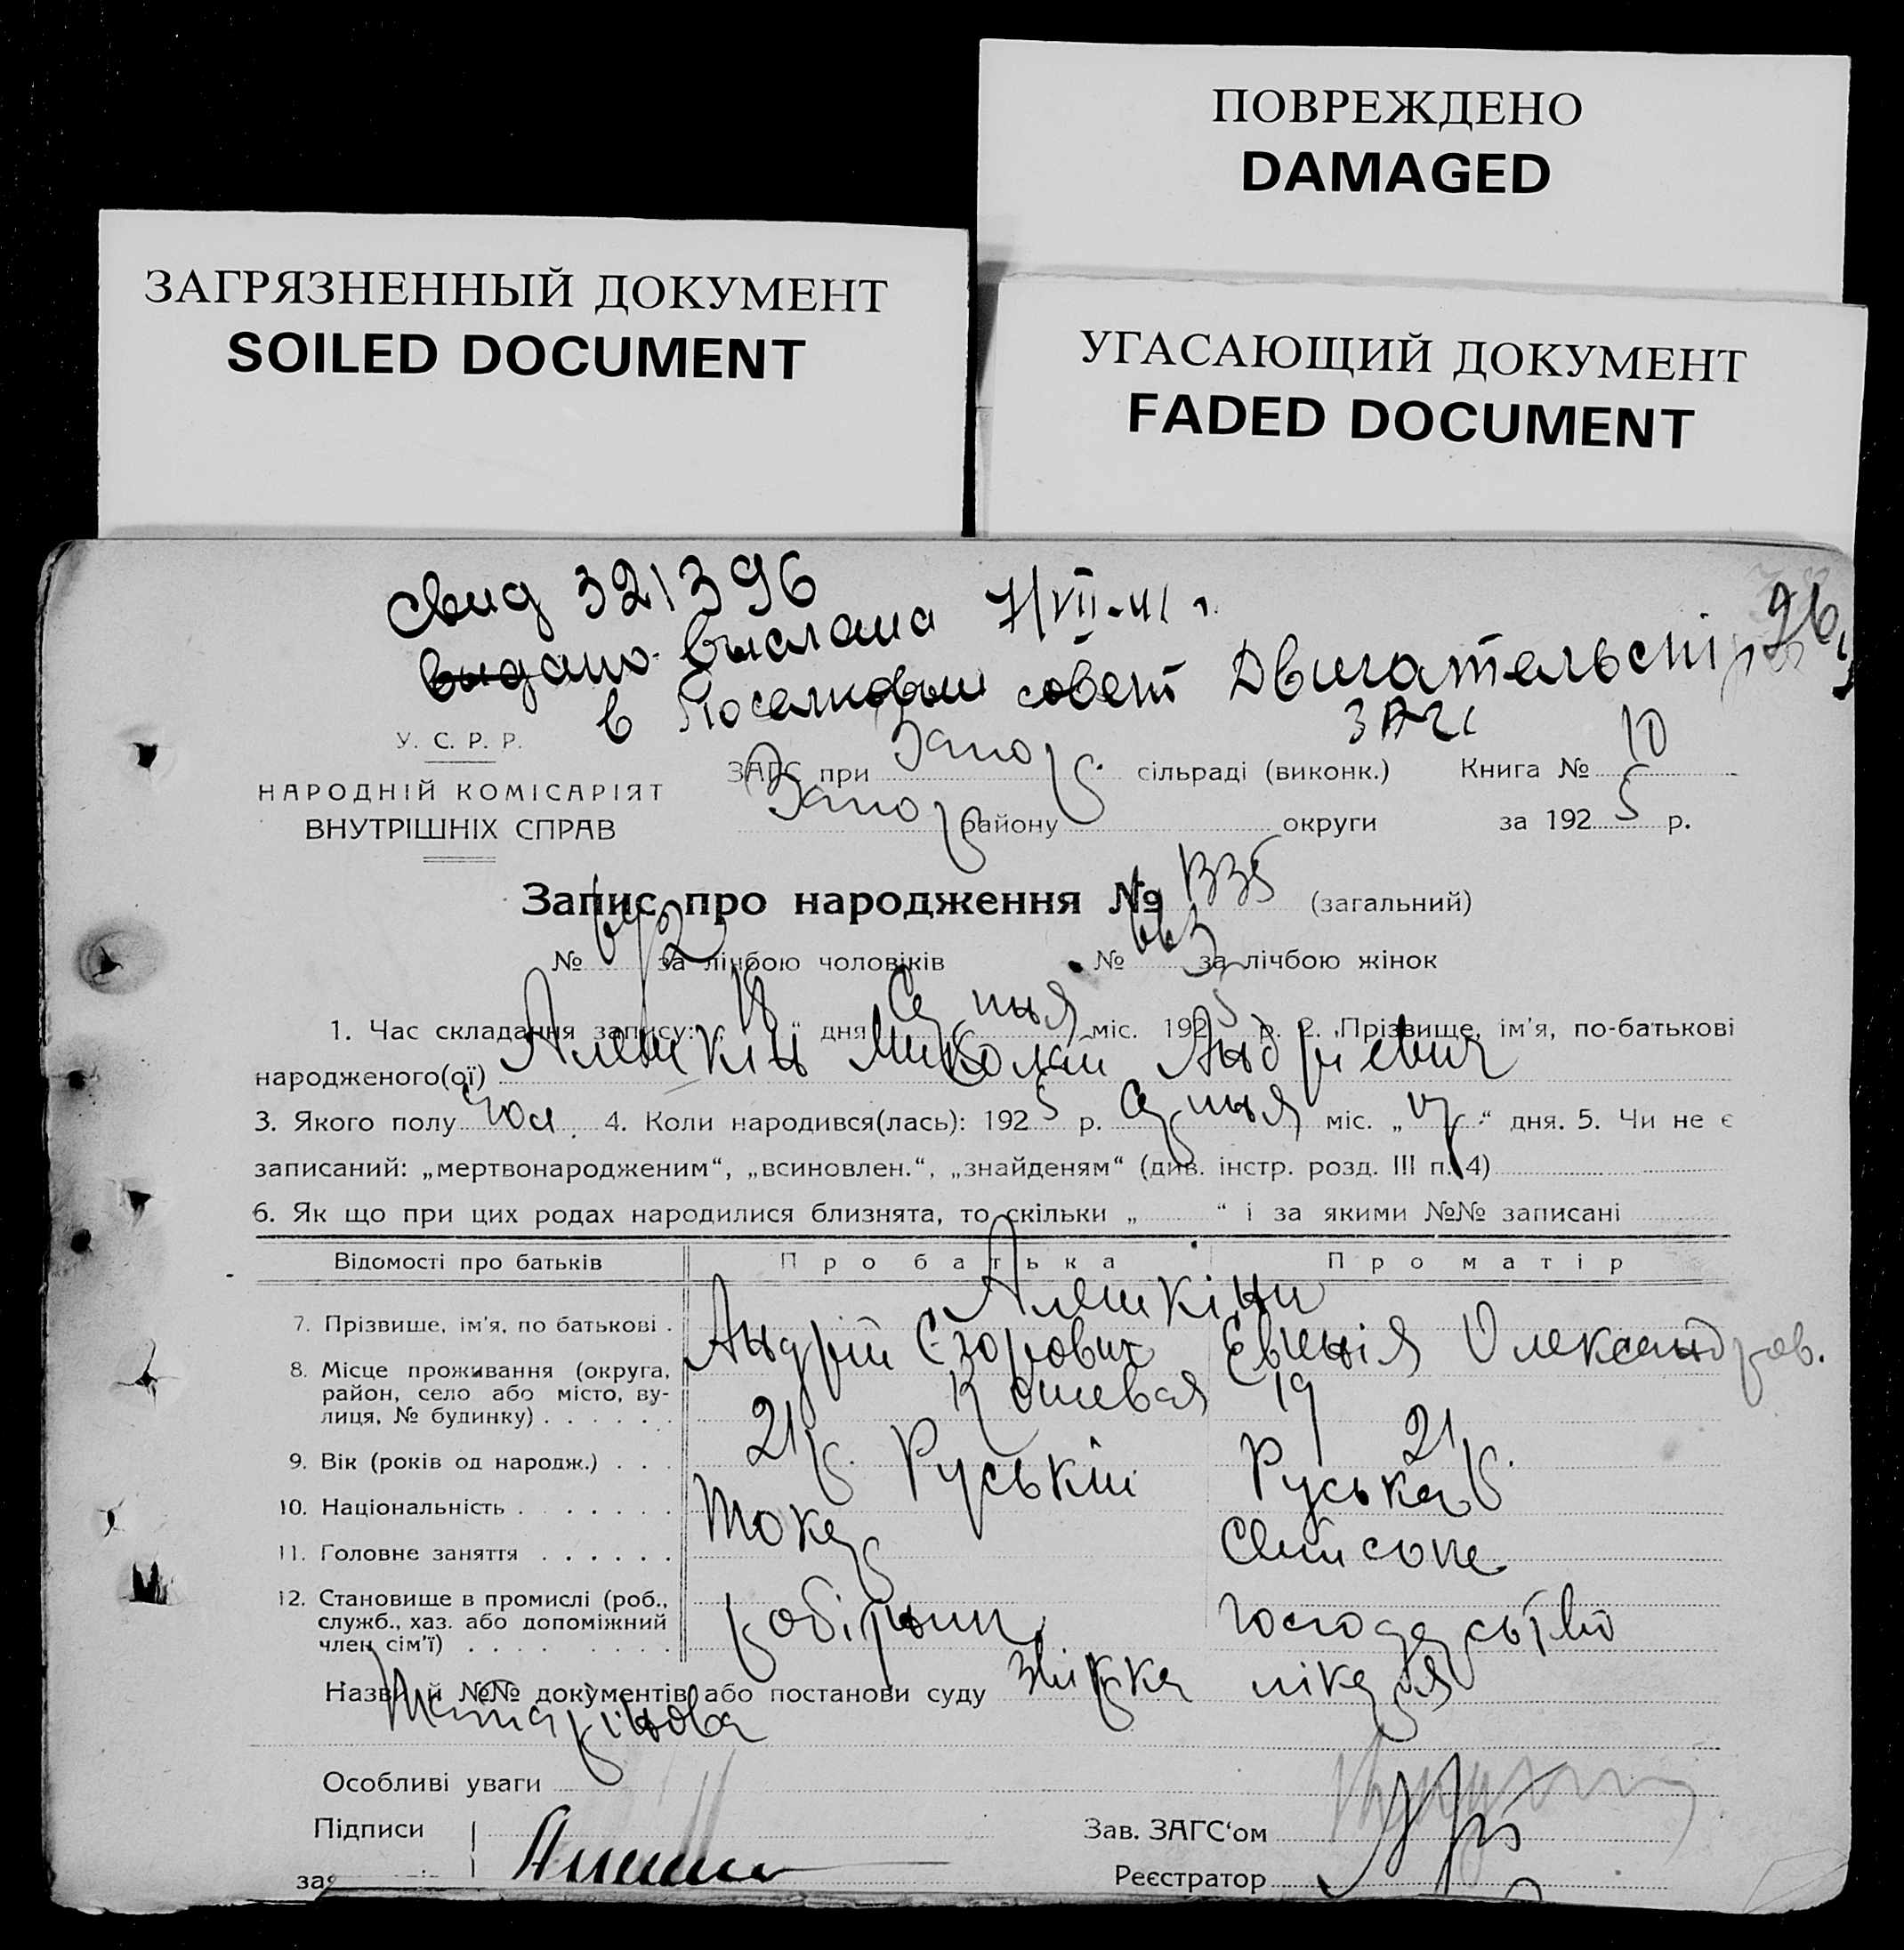 ПОВРЕЖДЕНО
DAMAGED
ЗАГРЯЗНЕННЫЙ ДОКУМЕНТ
SOILED DOCUMENT
УГАСАЮЩИЙ ДОКУМЕНТ
FADED DOCUMENT
Свид 321396
выдано выслана 7/VII-41 г.
в Поселковый совет Двигательстр
ЗАГС
96
У. С. Р. Р.
НАРОДНІЙ КОМІСАРІЯТ
ВНУТРІШНІХ СПРАВ
ЗАГС при Запор. сільраді (виконк.) Книга № 10
Запор району округи за 1925 р.
Запис про народження № 1335 (загальний)
№ 672 за лічбою чоловіків № 663 за лічбою жінок
1. Час складання запису: „18“ дня Серпня міс. 1925 р. 2. Прізвище, ім'я, по-батькові
народженого(ої) Алешкін Миколай Андрієвич
3. Якого полу чол. 4. Коли народився(лась): 1925 р. Серпня міс. „ “ дня. 5. Чи не є
записаний: „мертвонародженим“, „всиновлен.“, „знайденям“ (див. інстр. розд. III п. 4)
6. Як що при цих родах народилися близнята, то скільки „ “ і за якими №№ записані
Відомості про батьків Про батька Про матір
Алешкіни
7. Прізвище, ім'я, по батькові . Андрій Єгорович Евгенія Олександров.
8. Місце проживання (округа,
район, село або місто, ву-
лиця, № будинку) . . . . . . Кошевая 19
9. Вік (років од народж.) . . . 21 р. 21 р.
10. Національність . . . . . . . Руській Руська
11. Головне заняття . . . . . . Токар Сімейне
12. Становище в промислі (роб.,
служб., хаз. або допоміжний
член сім'ї) . . . . . . . . робітник господарство
Назви й №№ документів або постанови суду лікаря
Татарінова
Особливі уваги
Підписи
зая
Зав. ЗАГС'ом
Реєстратор